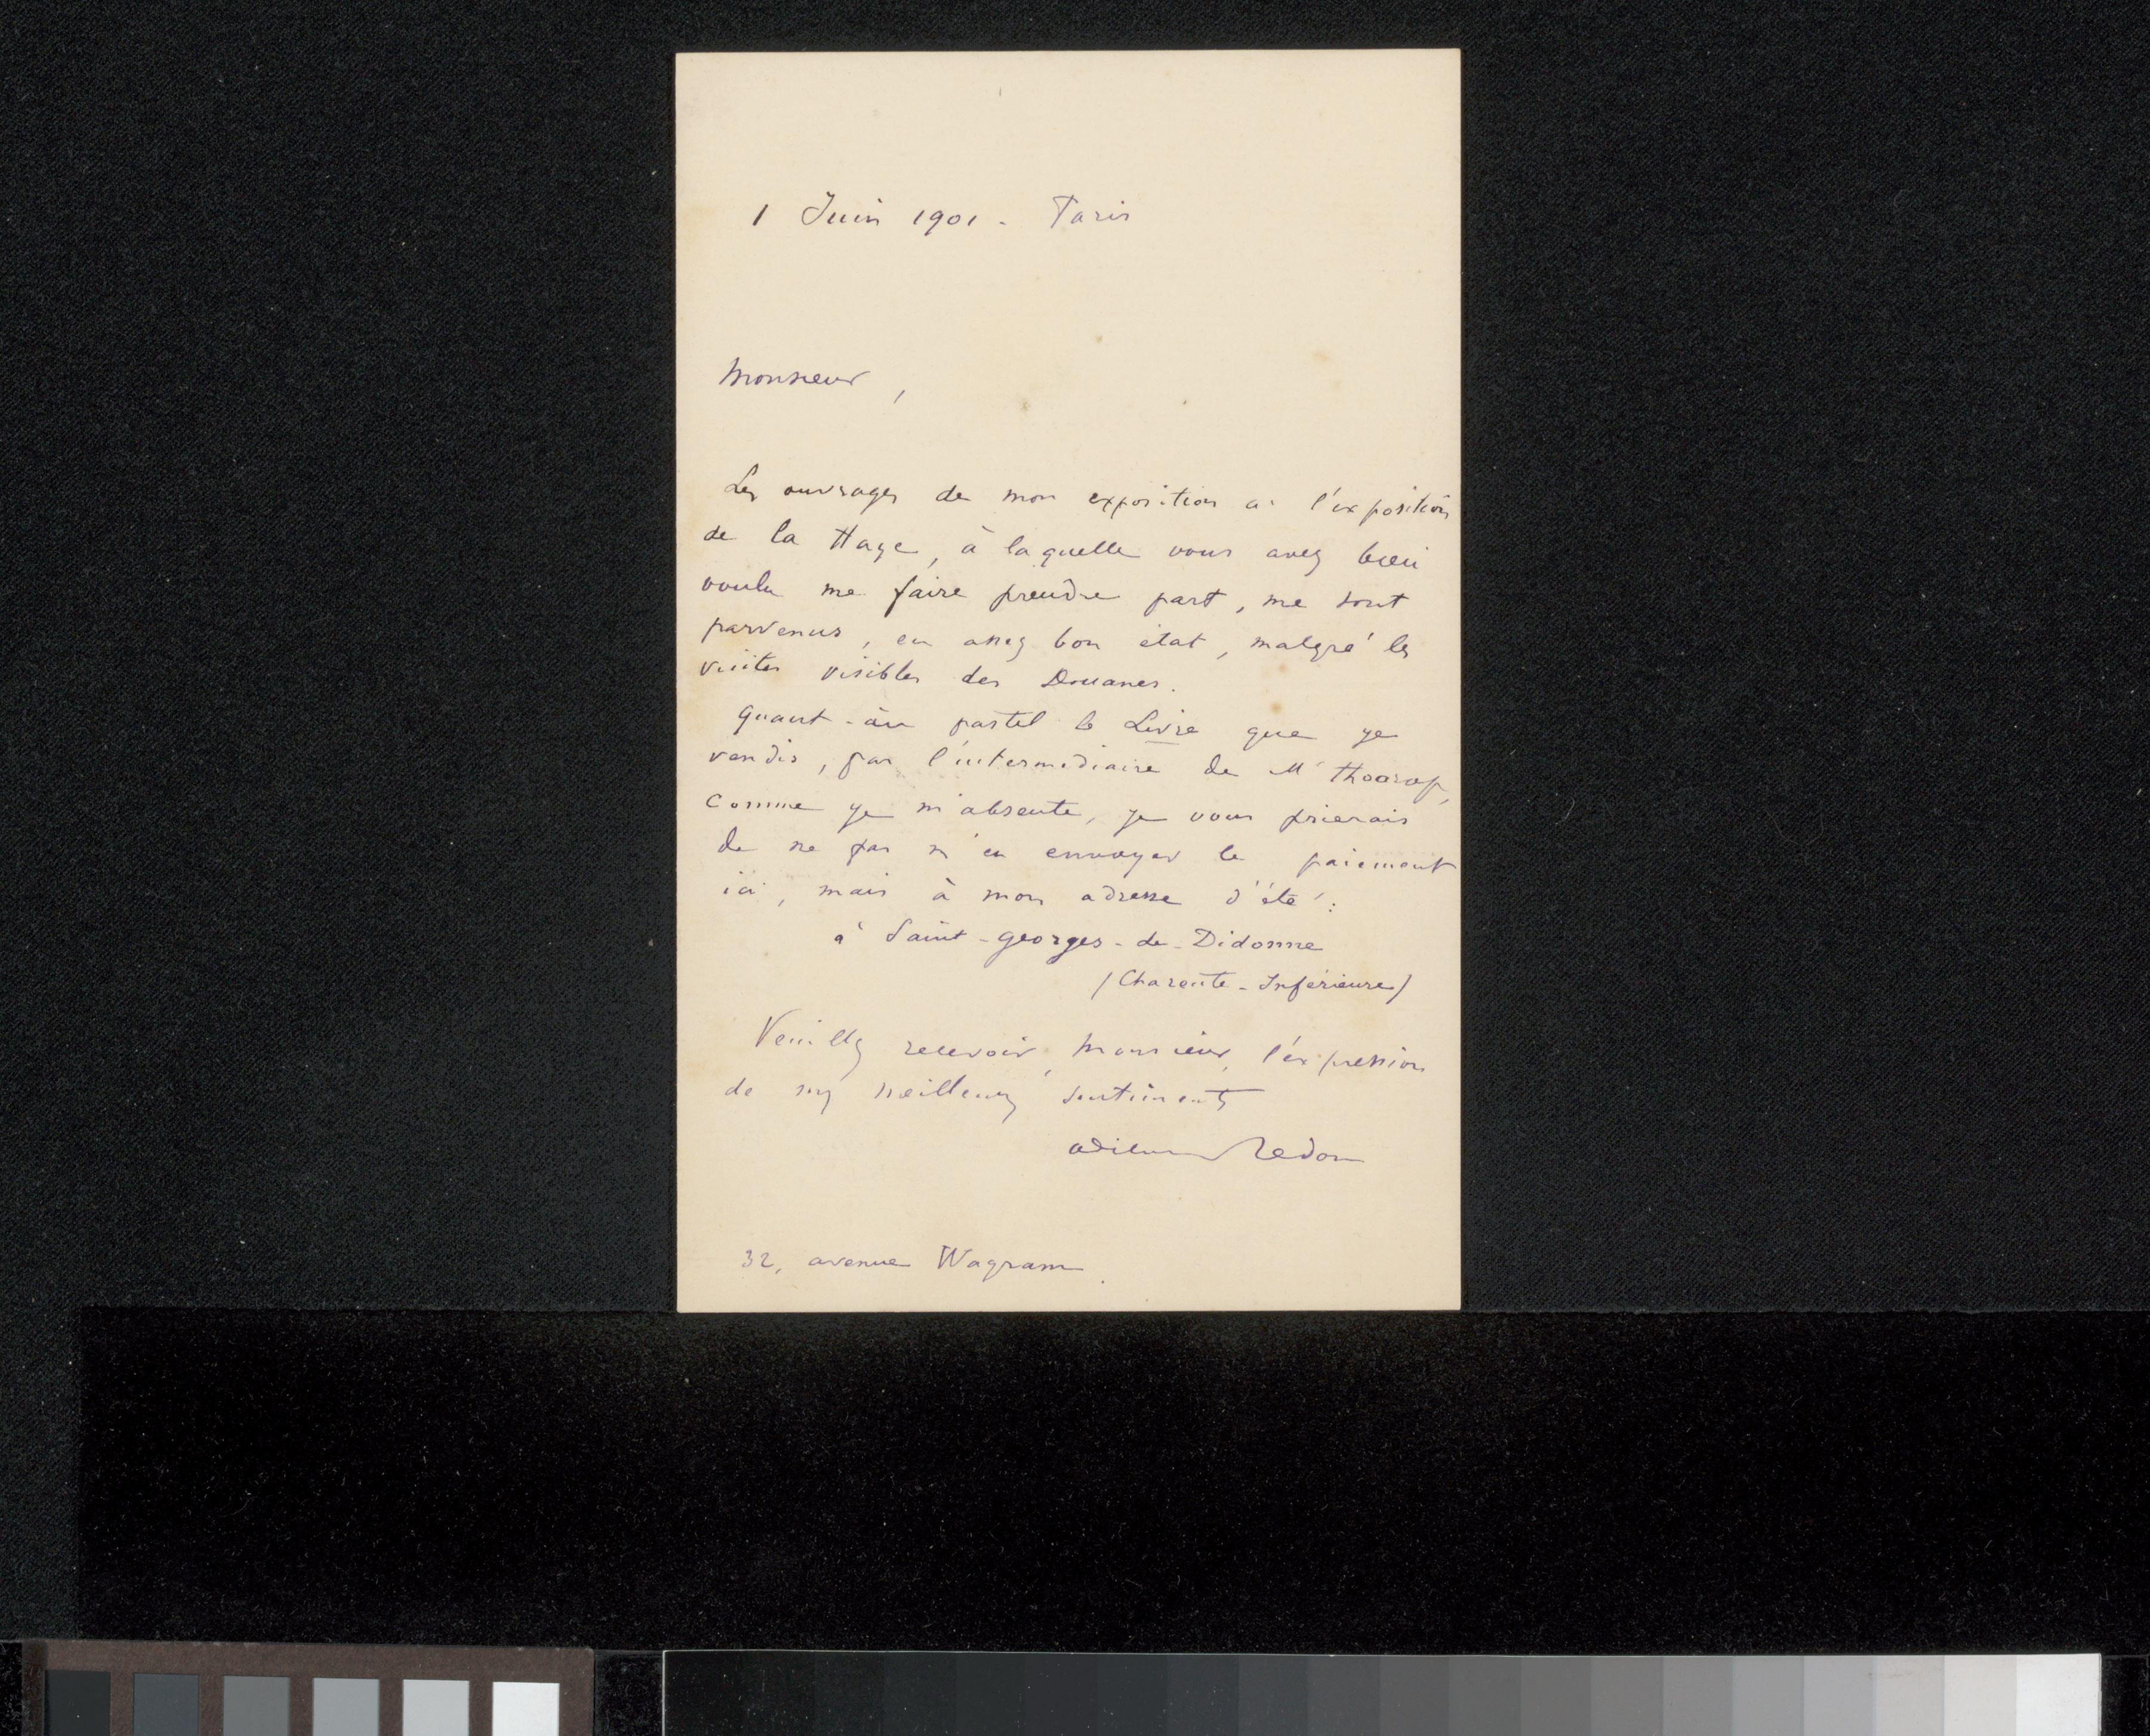 1 Juin 1901 - Paris
Monsieur,
Les ouvrages de mon exposition à l'exposition
de la Haye, à laquelle vous avez bien
voulu me faire prendre part, me sont
parvenus, en assez bon état, malgré les
visites visibles des Douanes.
Quant-au pastel le Livre que je
vendis, par l'intermédiaire de Mr Thoorop,
comme je m'absente, je vous prierais
de ne pas m'en envoyer le paiement
ici, mais à mon adresse d'été:
à Saint-Georges-de-Didonne
(Charente-Inférieure)
Veuillez recevoir, Monsieur, l'expression
de mes meilleurs sentiments
Odilon Redon
32, avenue Wagram.